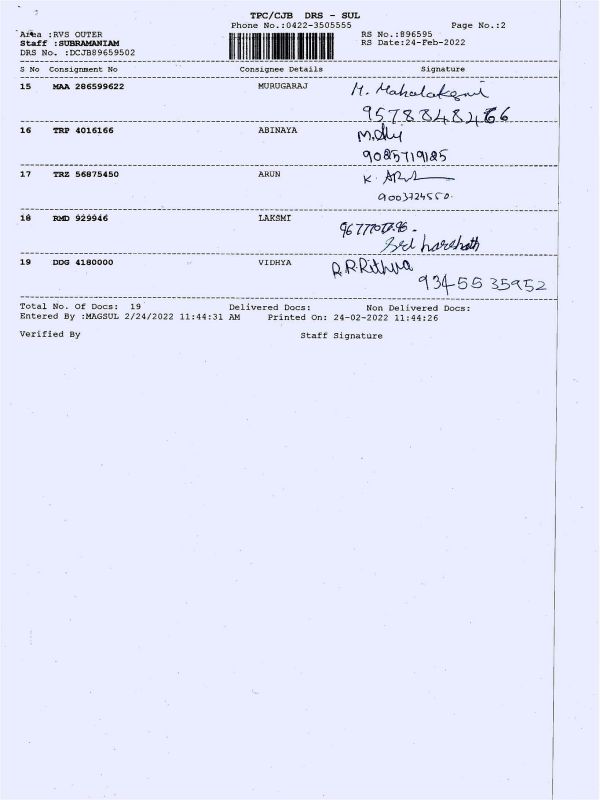 TPC/CJB DRS - SUL
Phone No.:0422-3505555 Page No.:2
Area :RVS OUTER RS No.:896595
Staff :SUBRAMANIAM RS Date:24-Feb-2022
DRS No. :DCJB89659502
S No Consignment No Consignee Details Signature
15 MAA 286599622 MURUGARAJ M. Mahalakshmi
9578848466
16 TRP 4016166 ABINAYA
9025719125
17 TRZ 56875450 ARUN K. ARUN
9003724550.
18 RMD 929946 LAKSMI
Sri harshath
19 DDG 4180000 VIDHYA R.R.Rithva
9345535952
Total No. Of Docs: 19 Delivered Docs: Non Delivered Docs:
Entered By :MAGSUL 2/24/2022 11:44:31 AM Printed On: 24-02-2022 11:44:26
Verified By Staff Signature